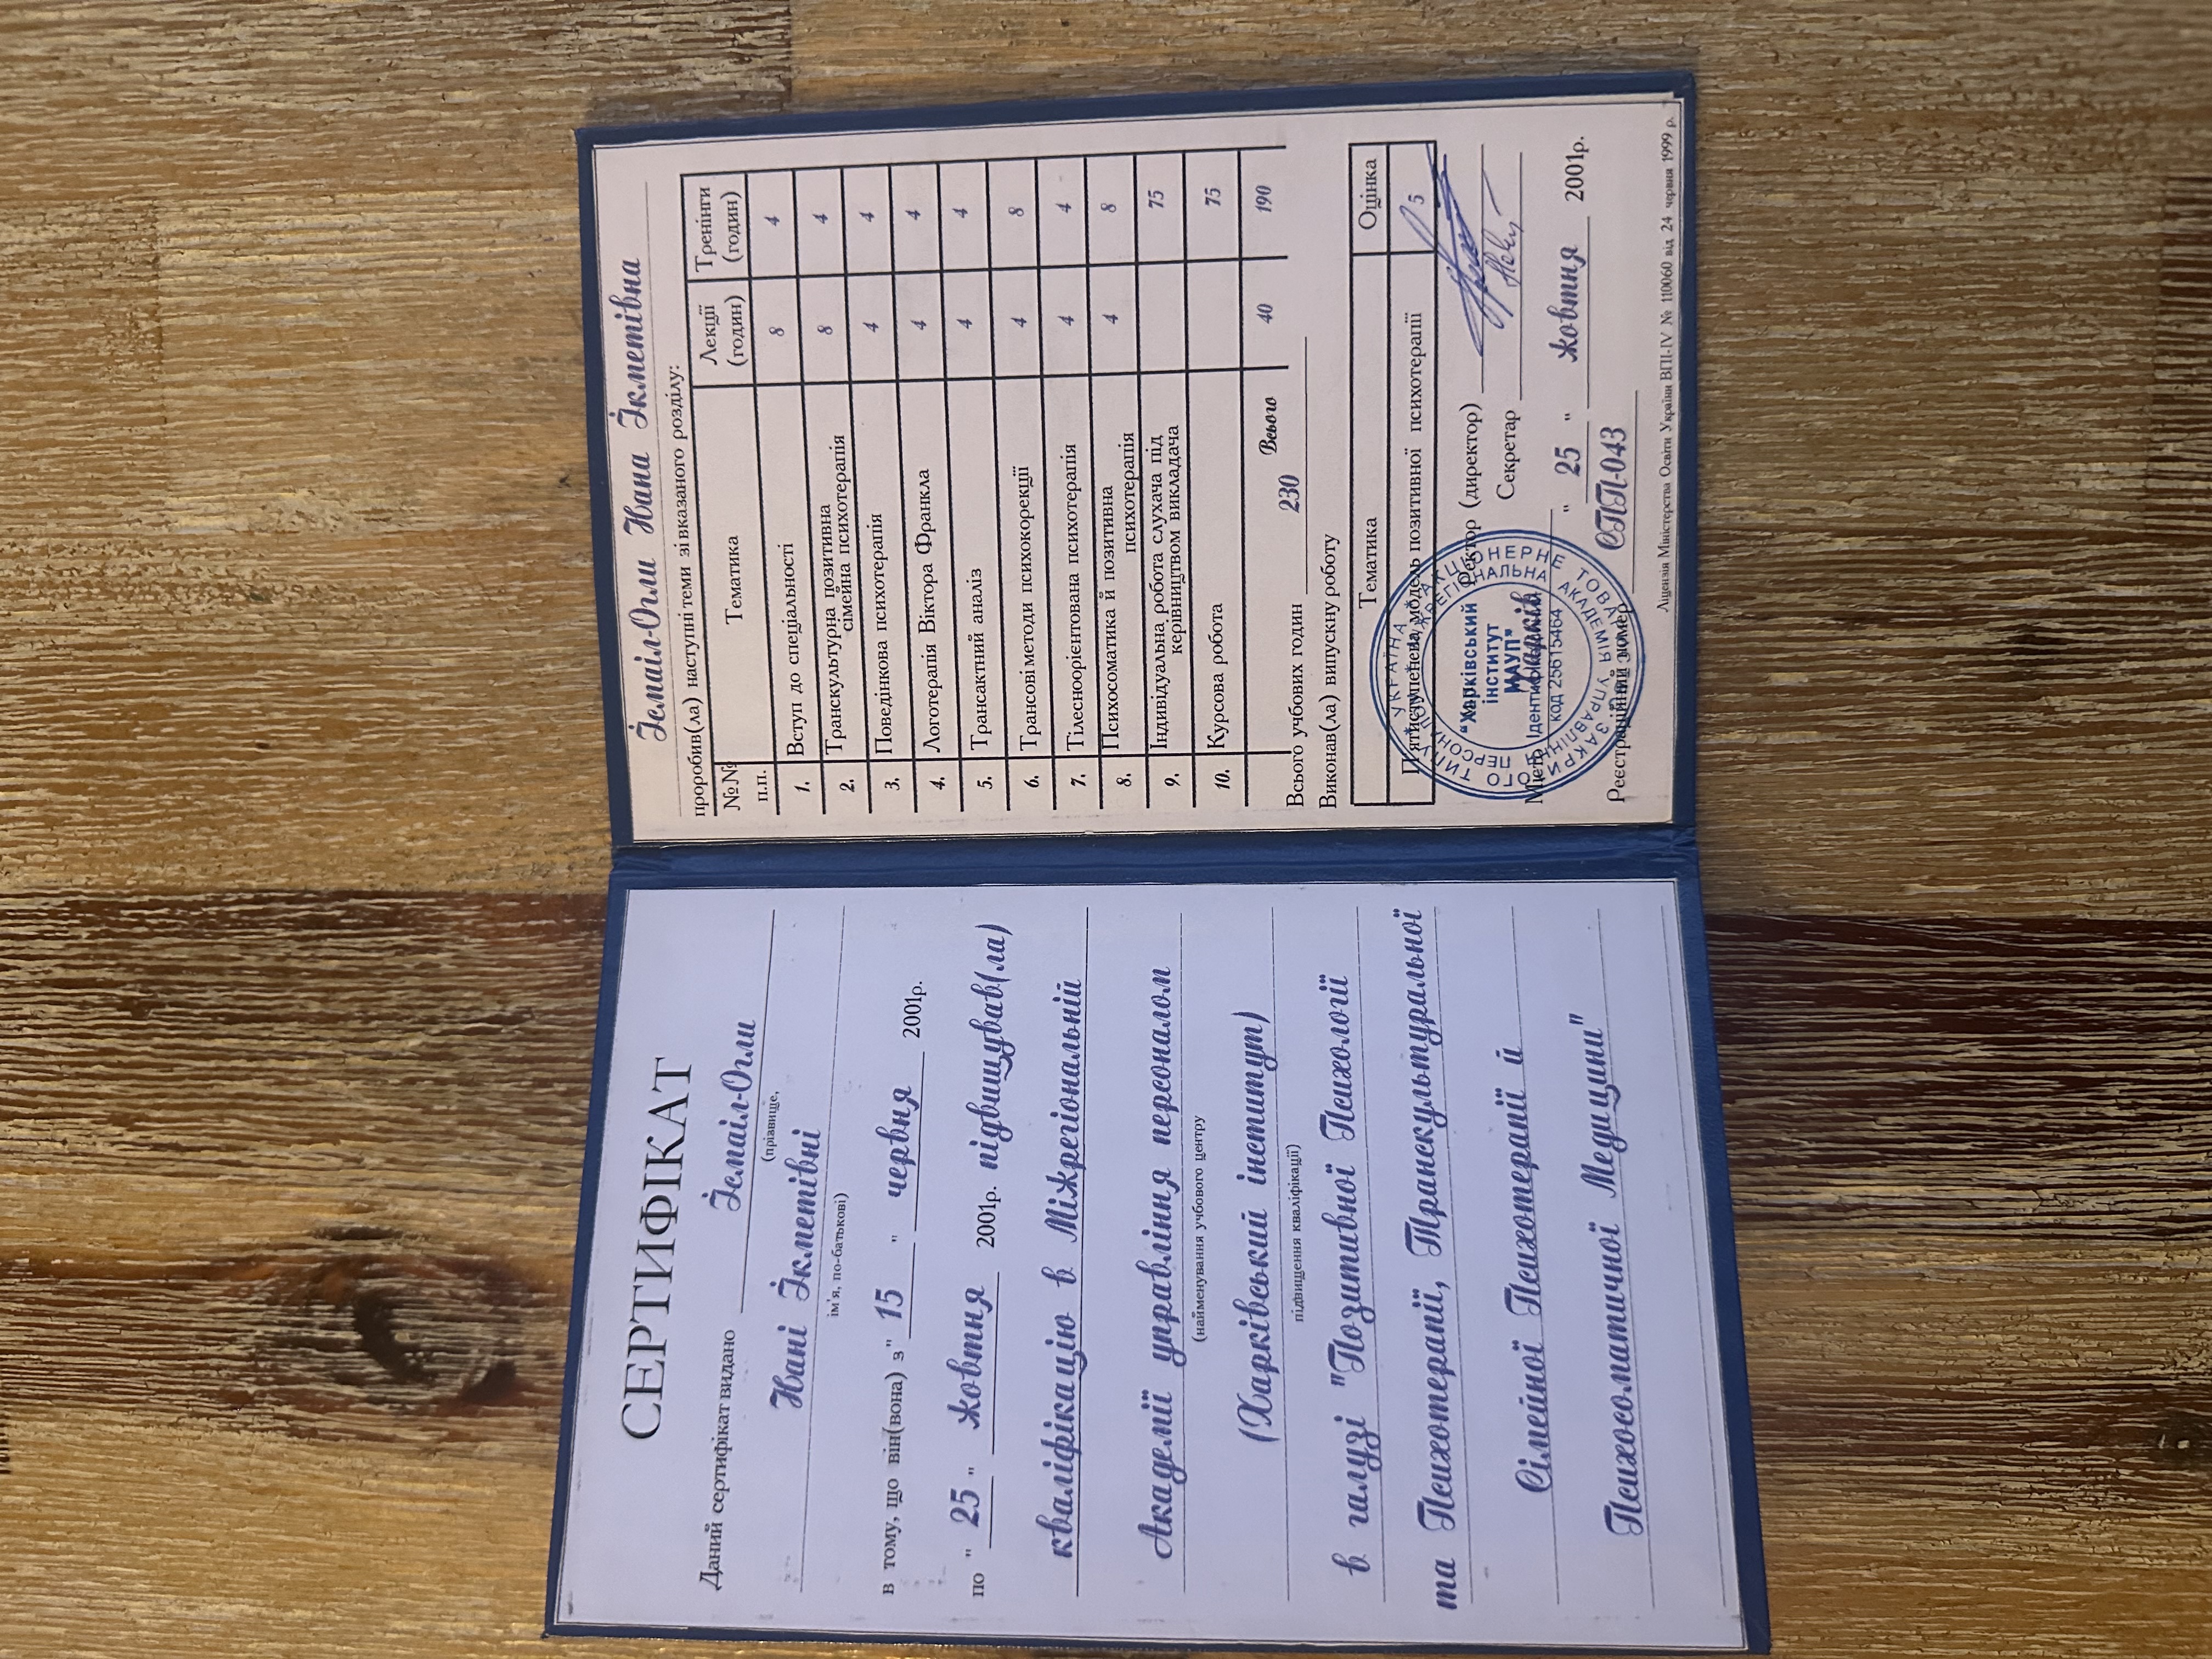 СЕРТИФІКАТ
Даний сертифікат видано Ісмаіл-Огли
(прізвище,
Нані Ікметівні
ім'я, по-батькові)
в тому, що він(вона) з" 15 " червня 2001р.
по " 25 " жовтня 2001р. підвищував(ла)
кваліфікацію в Міжрегіональній
Академії управління персоналом
(найменування учбового центру
(Харківський інститут)
підвищення кваліфікації)
в галузі "Позитивної Психології
та Психотерапії, Транскультуральної
Сімейної Психотерапії й
Психосоматичної Медицини"
Ісмаіл-Огли Нана Ікметівна
проробив(ла) наступні теми зі вказаного розділу:
№№ п.п. Тематика Лекції (годин) Тренінги (годин)
1. Вступ до спеціальності 8 4
2. Транскультурна позитивна сімейна психотерапія 8 4
3. Поведінкова психотерапія 4 4
4. Логотерапія Віктора Франкла 4 4
5. Трансактний аналіз 4 4
6. Трансові методи психокорекції 4 8
7. Тілесноорієнтована психотерапія 4 4
8. Психосоматика й позитивна психотерапія 4 8
9. Індивідуальна робота слухача під керівництвом викладача 75
10. Курсова робота 75
Всього 40 190
Всього учбових годин 230
Виконав(ла) випускну роботу
Тематика Оцінка
П'ятиступенева модель позитивної психотерапії 5
Ректор (директор)
Секретар
Місто Харків " 25 " жовтня 2001р.
Реєстраційний номер СПП-043
Ліцензія Міністерства Освіти України ВПІ-IV № 110060 від 24 червня 1999 р.
УКРАЇНА * АКЦІОНЕРНЕ ТОВАРИСТВО ЗАКРИТОГО ТИПУ
МІЖРЕГІОНАЛЬНА АКАДЕМІЯ УПРАВЛІННЯ ПЕРСОНАЛОМ
"Харківський
інститут
МАУП"
Ідентифікаційний
код 25615464